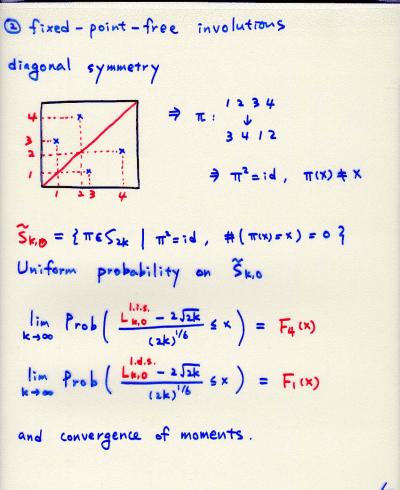 ② fixed-point-free involutions
diagonal symmetry
4
3
2
1
1 2 3 4
⇒ π : 1 2 3 4
↓
3 4 1 2
⇒ π² = id, π(x) ≠ x
S̃_{k,0} = { π ∈ S_{2k} | π² = id, #(π(x)=x) = 0 }
Uniform probability on S̃_{k,0}
lim_{k→∞} Prob ( (L^{l.i.s.}_{k,0} - 2√2k) / (2k)^{1/6} ≤ x ) = F₄(x)
lim_{k→∞} Prob ( (L^{l.d.s.}_{k,0} - 2√2k) / (2k)^{1/6} ≤ x ) = F₁(x)
and convergence of moments.